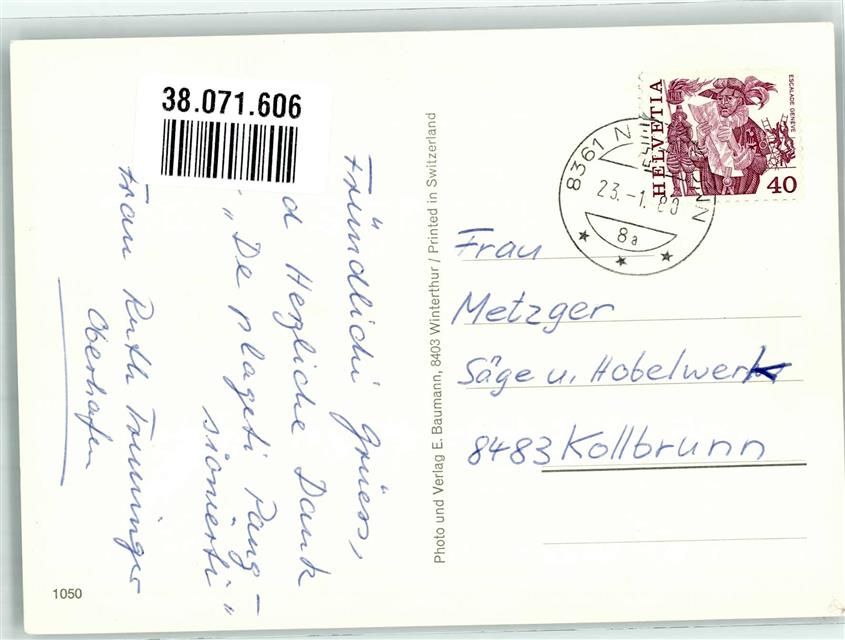 38.071.606
Fründlichi Grüess,
d Herzliche Dank
„De plageti Pang-
sionierti"
Frau Ruth Truninger
Oberhofen
1050
Photo und Verlag E. Baumann, 8403 Winterthur / Printed in Switzerland
HELVETIA
ESCALADE GENÈVE
40
8361
23.-1.80
8a
Frau
Metzger
Säge u. Hobelwerk
8483 Kollbrunn